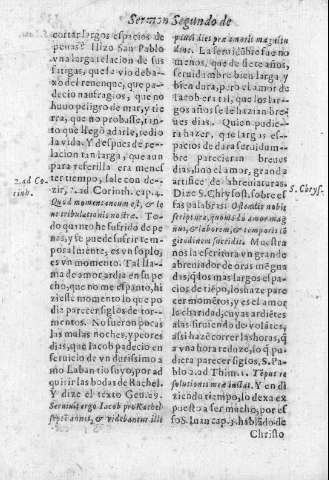 Sermon Segundo de
cortar largos espacios de
penas? Hizo San Pablo
vna larga relacion de sus
fatigas, que la vio deba-
xo del renenque, que pa-
decio naufragios, que no
huuo peligro de mar, y tie
rra, que no prouasse, tan-
to que llegò à darle, tedio
la vida. Y despues de re-
lacion tan larga, que aun
para referirla era menes
ter tiempo, sale con de-
zir, 2. ad Corinth. cap. 4.
2. ad Co-
rinth.
Quod momentaneum est, & le
ue tribulationis nostræ. To-
do quanto he sufrido de pe
nas, y se puede sufrir tem-
poralmente, es vn soplo,
es vn momento. Tal lla-
ma de amor ardia en su pe
cho, que no me espanto, hi
zieste momento lo que po
dia parecer siglos de tor-
mentos. No fueron pocas
las malas noches, y peores
dias, que Iacob padeciò en
seruicio de vn durissimo a
mo Laban tio suyo, por ad
quirir las bodas de Rachel.
Y dize el texto Gen. 29.
Seruiuit ergo Iacob pro Rachel
septem annis, & videbantur illi
pauci dies præ amoris magnitu
dine. La seruidũbre fue no
menos, que de siete años,
seruidumbre bien larga, y
bien dura, pero el amor de
Iacob era tal, que los lar-
gos años se le hazian bre-
ues dias. Quien pudie-
ra hazer, que largas es
duras de seruidum-
bre parecieran breues
dias, sino el amor, grande
artifice de abreuiaturas.
Dize S. Chrysost. sobre es
S. Chrys.
sas palabras: Ostendit nobis
scriptura, quomodo amor mag
nus, & laborem, & temporis lõ
gitudinem succidit. Muestra
nos la escritura vn grande
abreuiador de oras mẽgua
das, q̃ los mas largos espa
cios de tiẽpo, los haze pare
cer momẽtos, y es el amor
le claridad, cuyas ardiẽtes
alas siruiendo de volãtes,
assi haze correr las horas, q̃
a vna hora redoze, lo q̃ pu
diera parecer siglos. S. Pa-
blo 2. ad Thim. 1. Tẽpus re
solutionis meæ instat. Y en di
ziendo tiempo, lo dexa ex
puesto a ser mucho, por es
so S. Iuan cap. 3. hablãdo de
Christo